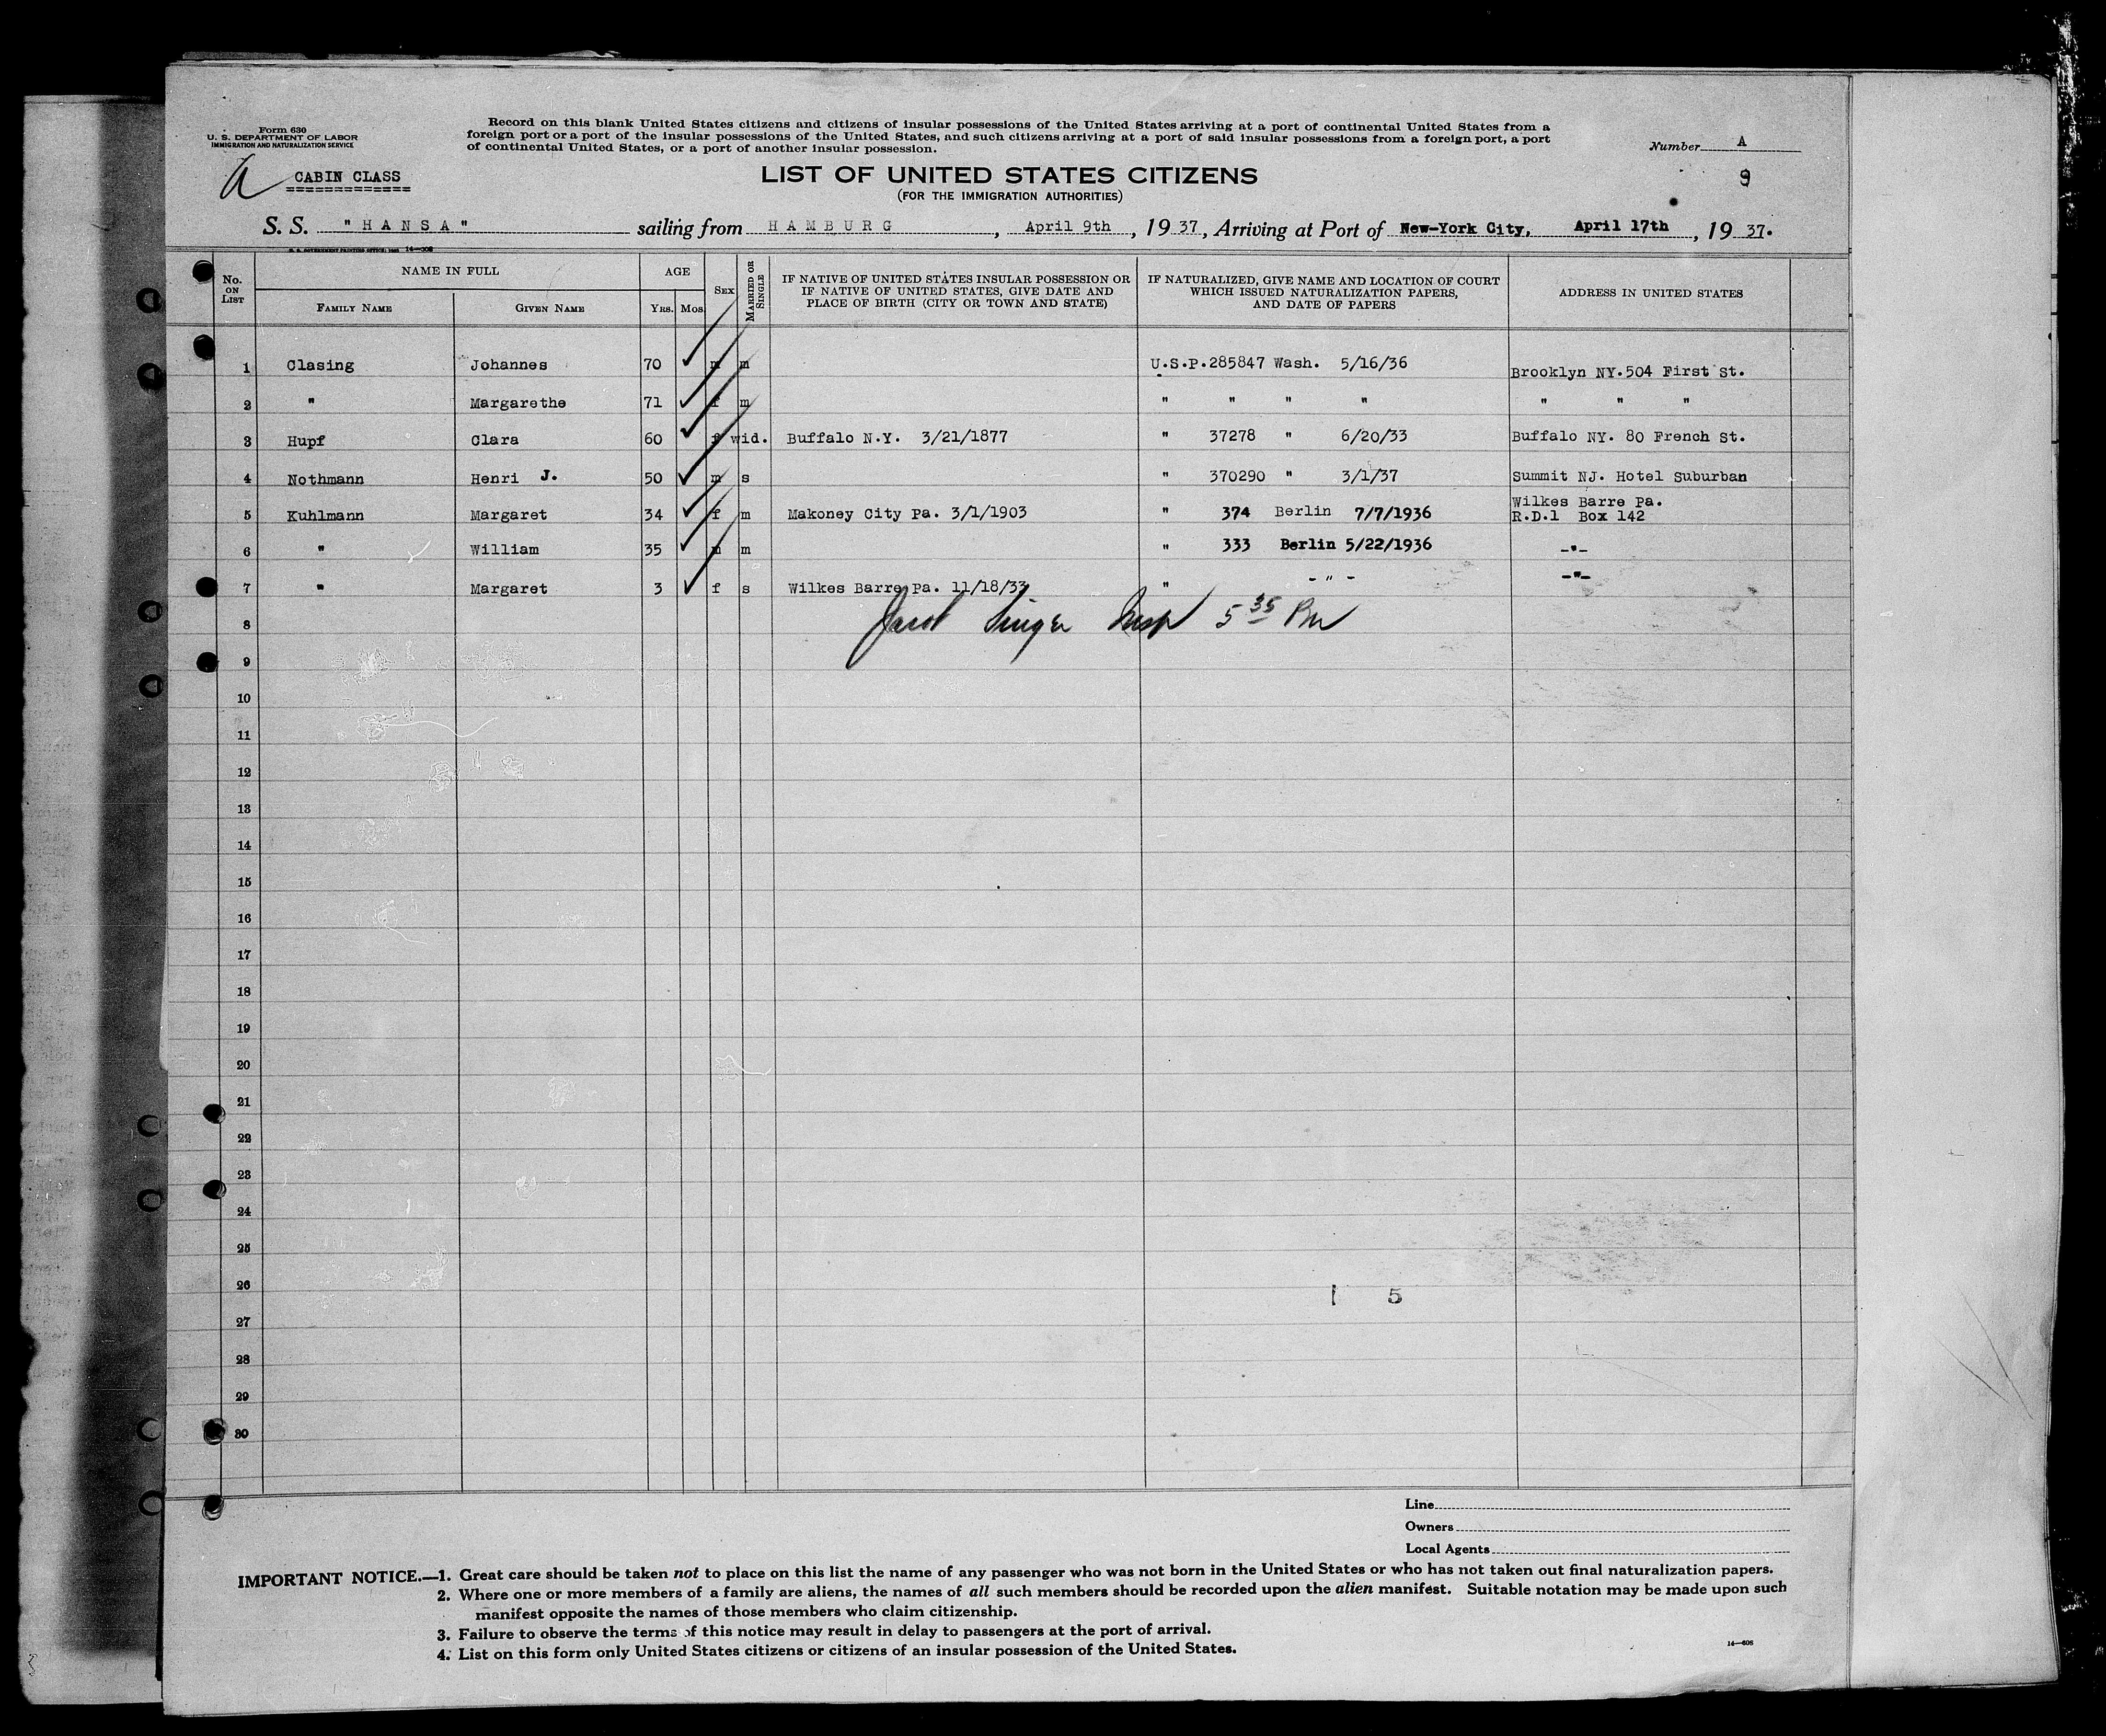 Form 630
U. S. DEPARTMENT OF LABOR
IMMIGRATION AND NATURALIZATION SERVICE
Record on this blank United States citizens and citizens of insular possessions of the United States arriving at a port of continental United States from a
foreign port or a port of the insular possessions of the United States, and such citizens arriving at a port of said insular possessions from a foreign port, a port
of continental United States, or a port of another insular possession.
Number A
9
a CABIN CLASS
LIST OF UNITED STATES CITIZENS
(FOR THE IMMIGRATION AUTHORITIES)
S. S. "HANSA" sailing from HAMBURG, April 9th, 1937, Arriving at Port of New-York City, April 17th, 1937.
No. ON LIST
NAME IN FULL
FAMILY NAME GIVEN NAME
AGE
YRS. MOS
SEX
MARRIED OR SINGLE
IF NATIVE OF UNITED STATES INSULAR POSSESSION OR
IF NATIVE OF UNITED STATES, GIVE DATE AND
PLACE OF BIRTH (CITY OR TOWN AND STATE)
IF NATURALIZED, GIVE NAME AND LOCATION OF COURT
WHICH ISSUED NATURALIZATION PAPERS,
AND DATE OF PAPERS
ADDRESS IN UNITED STATES
1 Clasing Johannes 70 m m U.S.P.285847 Wash. 5/16/36 Brooklyn NY.504 First St.
2 " Margarethe 71 f m " " " " " " "
3 Hupf Clara 60 f wid. Buffalo N.Y. 3/21/1877 " 37278 " 6/20/33 Buffalo NY. 80 French St.
4 Nothmann Henri J. 50 m s " 370290 " 3/1/37 Summit NJ. Hotel Suburban
5 Kuhlmann Margaret 34 f m Makoney City Pa. 3/1/1903 " 374 Berlin 7/7/1936 Wilkes Barre Pa.
R.D.1 Box 142
6 " William 35 m m " 333 Berlin 5/22/1936 -"-
7 " Margaret 3 f s Wilkes Barre Pa. 11/18/33 " - " - -"-
8 Singer Insp 5 35 Pm
9
10
11
12
13
14
15
16
17
18
19
20
21
22
23
24
25
26
1 5
27
28
29
30
Line
Owners
Local Agents
IMPORTANT NOTICE.—1. Great care should be taken not to place on this list the name of any passenger who was not born in the United States or who has not taken out final naturalization papers.
2. Where one or more members of a family are aliens, the names of all such members should be recorded upon the alien manifest. Suitable notation may be made upon such
manifest opposite the names of those members who claim citizenship.
3. Failure to observe the terms of this notice may result in delay to passengers at the port of arrival.
4. List on this form only United States citizens or citizens of an insular possession of the United States.
14—608